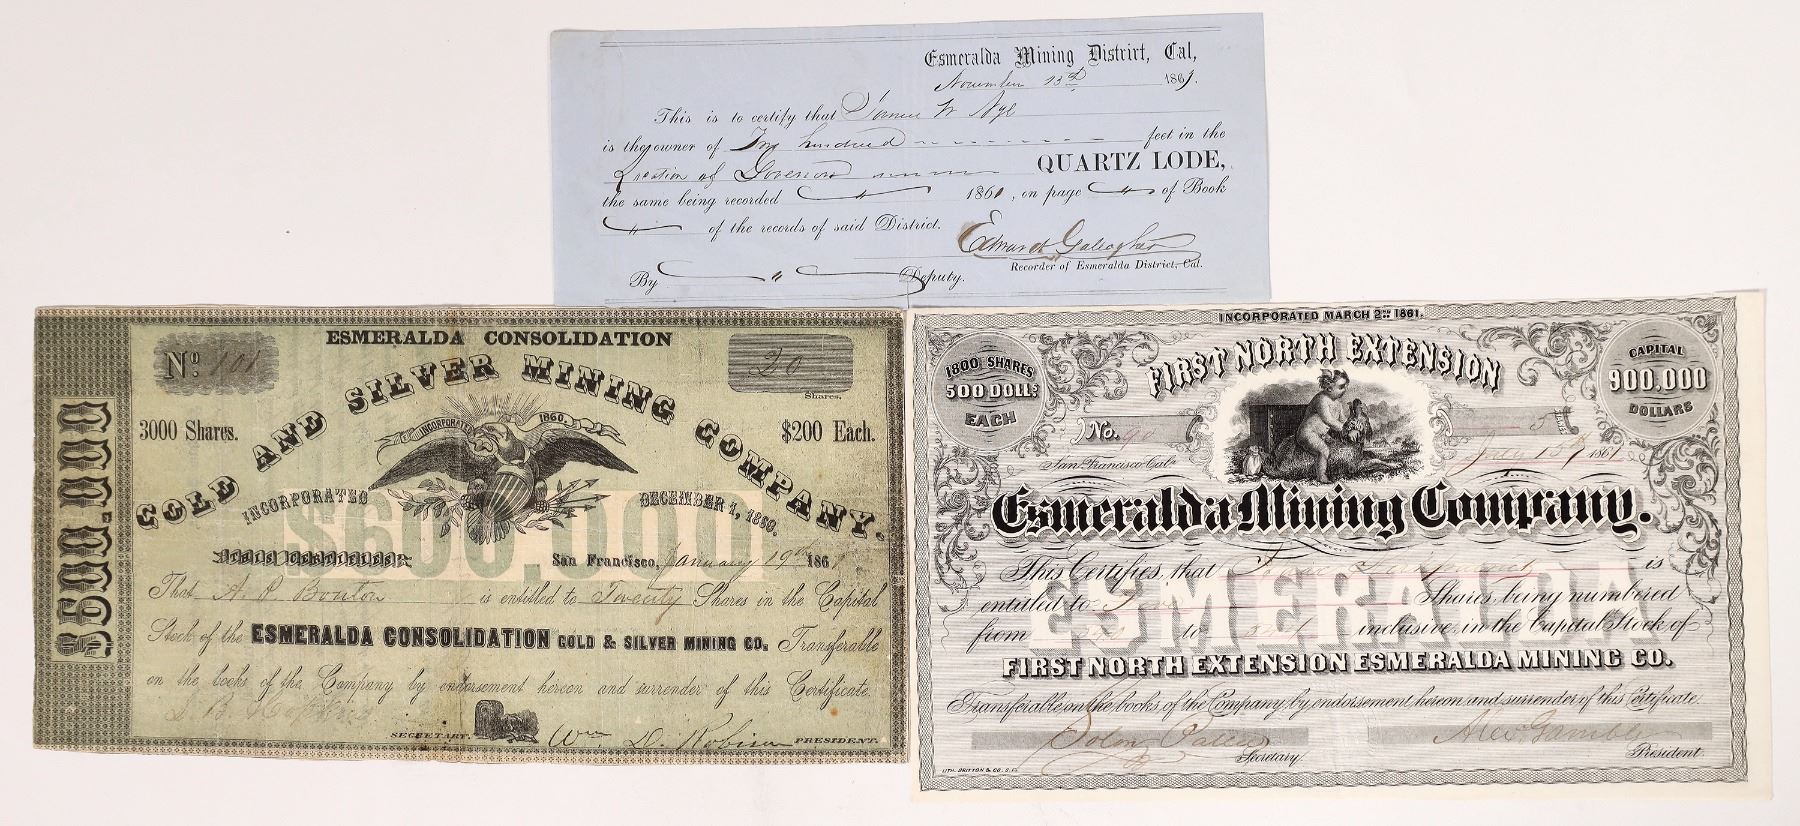 Esmeralda Mining District, Cal,
November 23d 1861.
This is to certify that James W Nye
is the owner of Two hundred feet in the
Location of Governor QUARTZ LODE,
the same being recorded " 1861, on page " of Book
" of the records of said District.
Edward Gallagher
Recorder of Esmeralda District, Cal.
By " Deputy.
ESMERALDA CONSOLIDATION
No. 101
20
Shares.
GOLD AND SILVER MINING COMPANY.
3000 Shares.
$200 Each.
INCORPORATED 1860.
INCORPORATED DECEMBER 1, 1860.
$600,000
$600,000
THIS CERTIFIES,
San Francisco, January 19th 1861
That A. P. Bouton is entitled to Twenty Shares in the Capital
Stock of the ESMERALDA CONSOLIDATION GOLD & SILVER MINING CO. Transferable
on the books of the Company by endorsement hereon and surrender of this Certificate.
SECRETARY.
Wm D. Robison PRESIDENT.
INCORPORATED MARCH 2ND 1861.
1800 SHARES
500 DOLLS
EACH
FIRST NORTH EXTENSION
CAPITAL
900,000
DOLLARS
No. 90
5
San Francisco Cal. 1861
Esmeralda Mining Company.
ESMERALDA
This Certifies, that is
entitled to Shares, being numbered
from to inclusive, in the Capital Stock of
FIRST NORTH EXTENSION ESMERALDA MINING CO.
Transferable on the books of the Company, by endorsement hereon and surrender of this Certificate.
Alex Gamble
Secretary.
President.
LITH. BRITTON & CO. S.F.